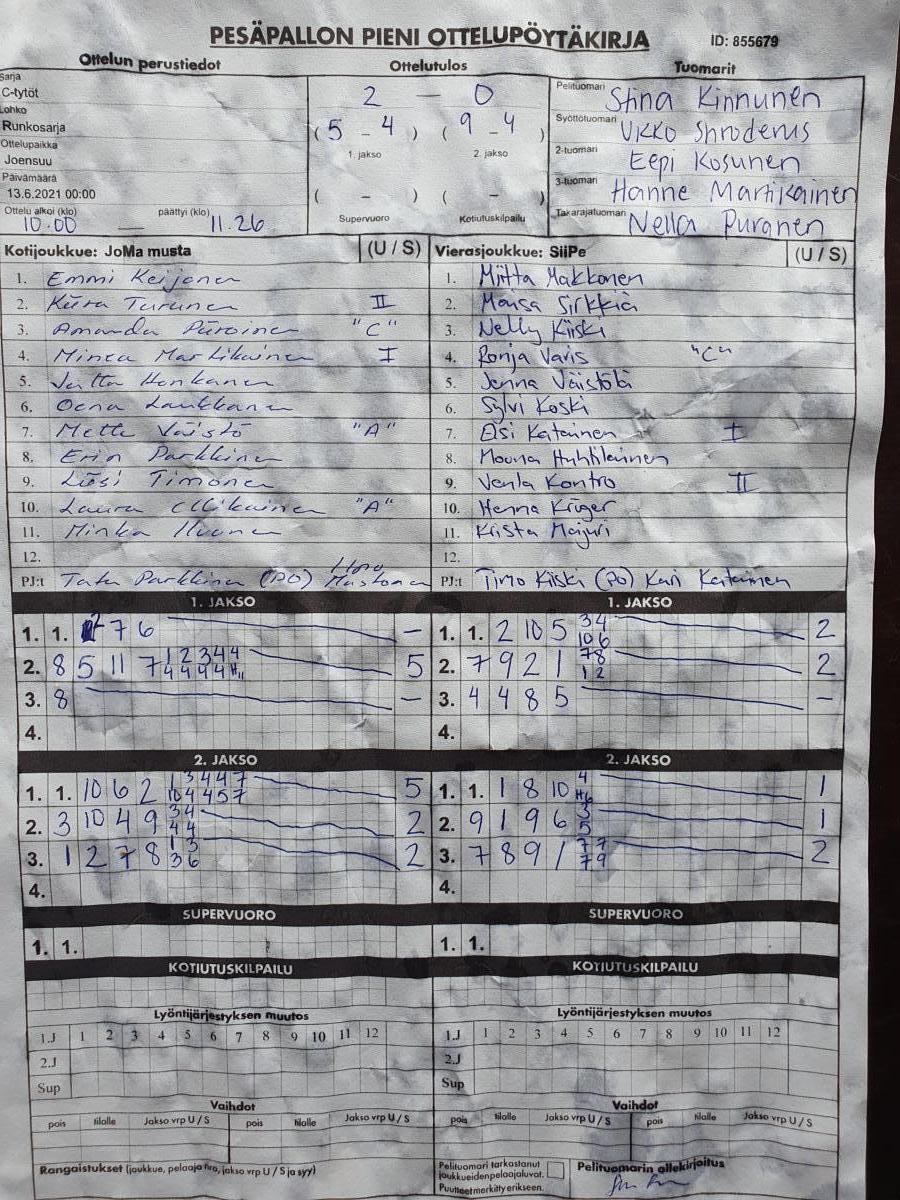 PESÄPALLON PIENI OTTELUPÖYTÄKIRJA ID: 855679
Ottelun perustiedot Ottelutulos Tuomarit
Sarja
C-tytöt
Lohko
Runkosarja
Ottelupaikka
Joensuu
Päivämäärä
13.6.2021 00:00
Ottelu alkoi (klo) päättyi (klo)
10.00 — 11.26
2 — 0
(5 - 4) (9 - 4)
1. jakso 2. jakso
( - ) ( - )
Supervuoro Kotiutuskilpailu
Pelituomari Stina Kinnunen
Syöttötuomari Ukko Shroderus
2-tuomari Eepi Kosunen
3-tuomari Hanne Martikainen
Takarajatuomari Nella Puranen
Kotijoukkue: JoMa musta (U / S)
1. Emmi Keijonen
2. Kiira Turunen II
3. Amanda Piiroinen "C"
4. Minea Martikainen I
5. Jutta Honkanen
6. Oona Laukkanen
7. Mette Väistö "A"
8. Erin Parkkinen
9. Liisi Timonen
10. Laura Ollikainen "A"
11. Minka Iivonen
12.
PJ:t Tatu Parkkinen (PO) Mustonen
Vierasjoukkue: SiiPe (U / S)
1. Miitta Makkonen
2. Maisa Sirkkiä
3. Nelly Kiiski
4. Ronja Varis "C"
5. Jenna Väistölä
6. Sylvi Koski
7. Elsi Katainen I
8. Moona Huhtilainen
9. Venla Kontro II
10. Henna Kröger
11. Krista Maijuri
12.
PJ:t Timo Kiiski (PO) Kari Katainen
1. JAKSO 1. JAKSO
1. 1. 7 6 —
2. 8 5 11 7 1 2 3 4 4 5
4 4 4 4
3. 8 —
4.
1. 1. 2 10 5 3 4 2
10 6
2. 7 9 2 1 7 8 2
1 2
3. 4 4 8 5 —
4.
2. JAKSO 2. JAKSO
1. 1. 10 6 2 1 3 4 4 7 5
10 4 4 5 7
2. 3 10 4 9 3 4 2
4 4
3. 1 2 7 8 1 3 2
3 6
4.
1. 1. 1 8 10 4 1
H6
2. 9 1 9 6 3 1
5
3. 7 8 9 1 7 7 2
7 9
4.
SUPERVUORO SUPERVUORO
1. 1. 1. 1.
KOTIUTUSKILPAILU KOTIUTUSKILPAILU
Lyöntijärjestyksen muutos Lyöntijärjestyksen muutos
1.J 1 2 3 4 5 6 7 8 9 10 11 12 1.J 1 2 3 4 5 6 7 8 9 10 11 12
2.J 2.J
Sup Sup
Vaihdot Vaihdot
pois tilalle Jakso vrp U / S pois tilalle Jakso vrp U / S pois tilalle Jakso vrp U / S pois tilalle Jakso vrp U / S
Rangaistukset (joukkue, pelaaja nro, jakso vrp U / S ja syy)
Pelituomari tarkastanut
joukkueiden pelaajaluvat.
Puutteet merkitty erikseen.
Pelituomarin allekirjoitus